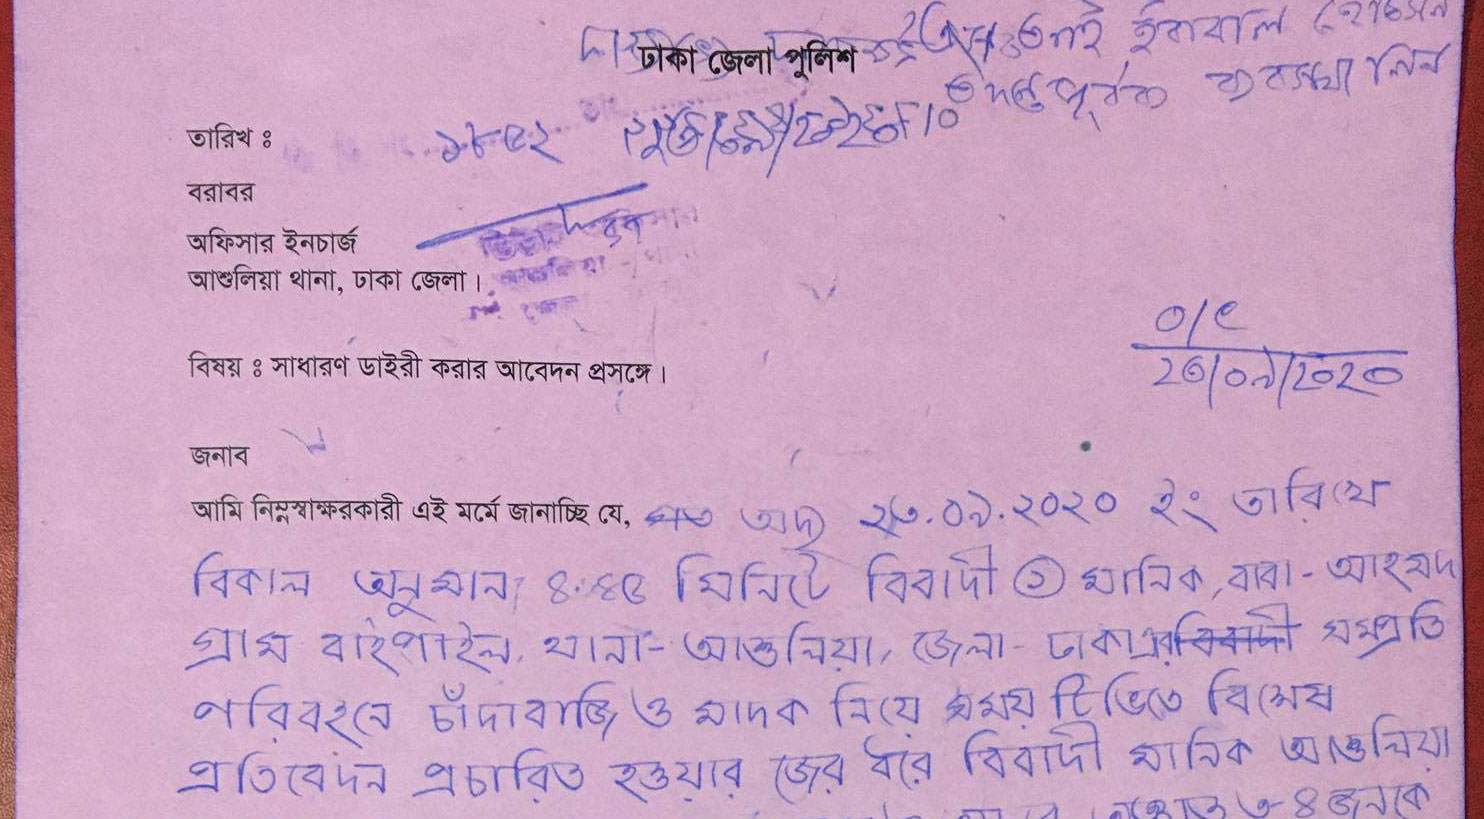 এএসআই ইকবাল হোসেন
ঢাকা জেলা পুলিশ
তদন্তপূর্বক ব্যবস্থা নিন
তারিখ ঃ
বরাবর
অফিসার ইনচার্জ
আশুলিয়া থানা, ঢাকা জেলা।
বিষয় ঃ সাধারণ ডাইরী করার আবেদন প্রসঙ্গে।
২৩/০৯/২০২০
জনাব
আমি নিম্নস্বাক্ষরকারী এই মর্মে জানাচ্ছি যে, অদ্য ২৩.০৯.২০২০ ইং তারিখে
বিকাল অনুমান ৪:৪৫ মিনিটে বিবাদী ১ মানিক, বাবা- আহমদ
গ্রাম বাইপাইল, থানা- আশুলিয়া, জেলা- ঢাকা এর বিবাদী সম্প্রতি
পরিবহনে চাঁদাবাজি ও মাদক নিয়ে সময় টিভিতে বিশেষ
প্রতিবেদন প্রচারিত হওয়ার জের ধরে বিবাদী মানিক আশুলিয়া
৩-৪ জনকে